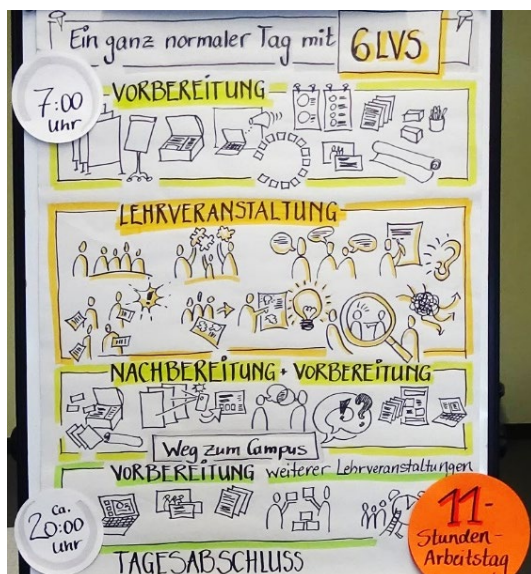 Ein ganz normaler Tag mit 6 LVS
7:00
Uhr
VORBEREITUNG
LEHRVERANSTALTUNG
NACHBEREITUNG + VORBEREITUNG
Weg zum Campus
VORBEREITUNG weiterer Lehrveranstaltungen
ca.
20:00
Uhr
11-
Stunden-
Arbeitstag
TAGESABSCHLUSS